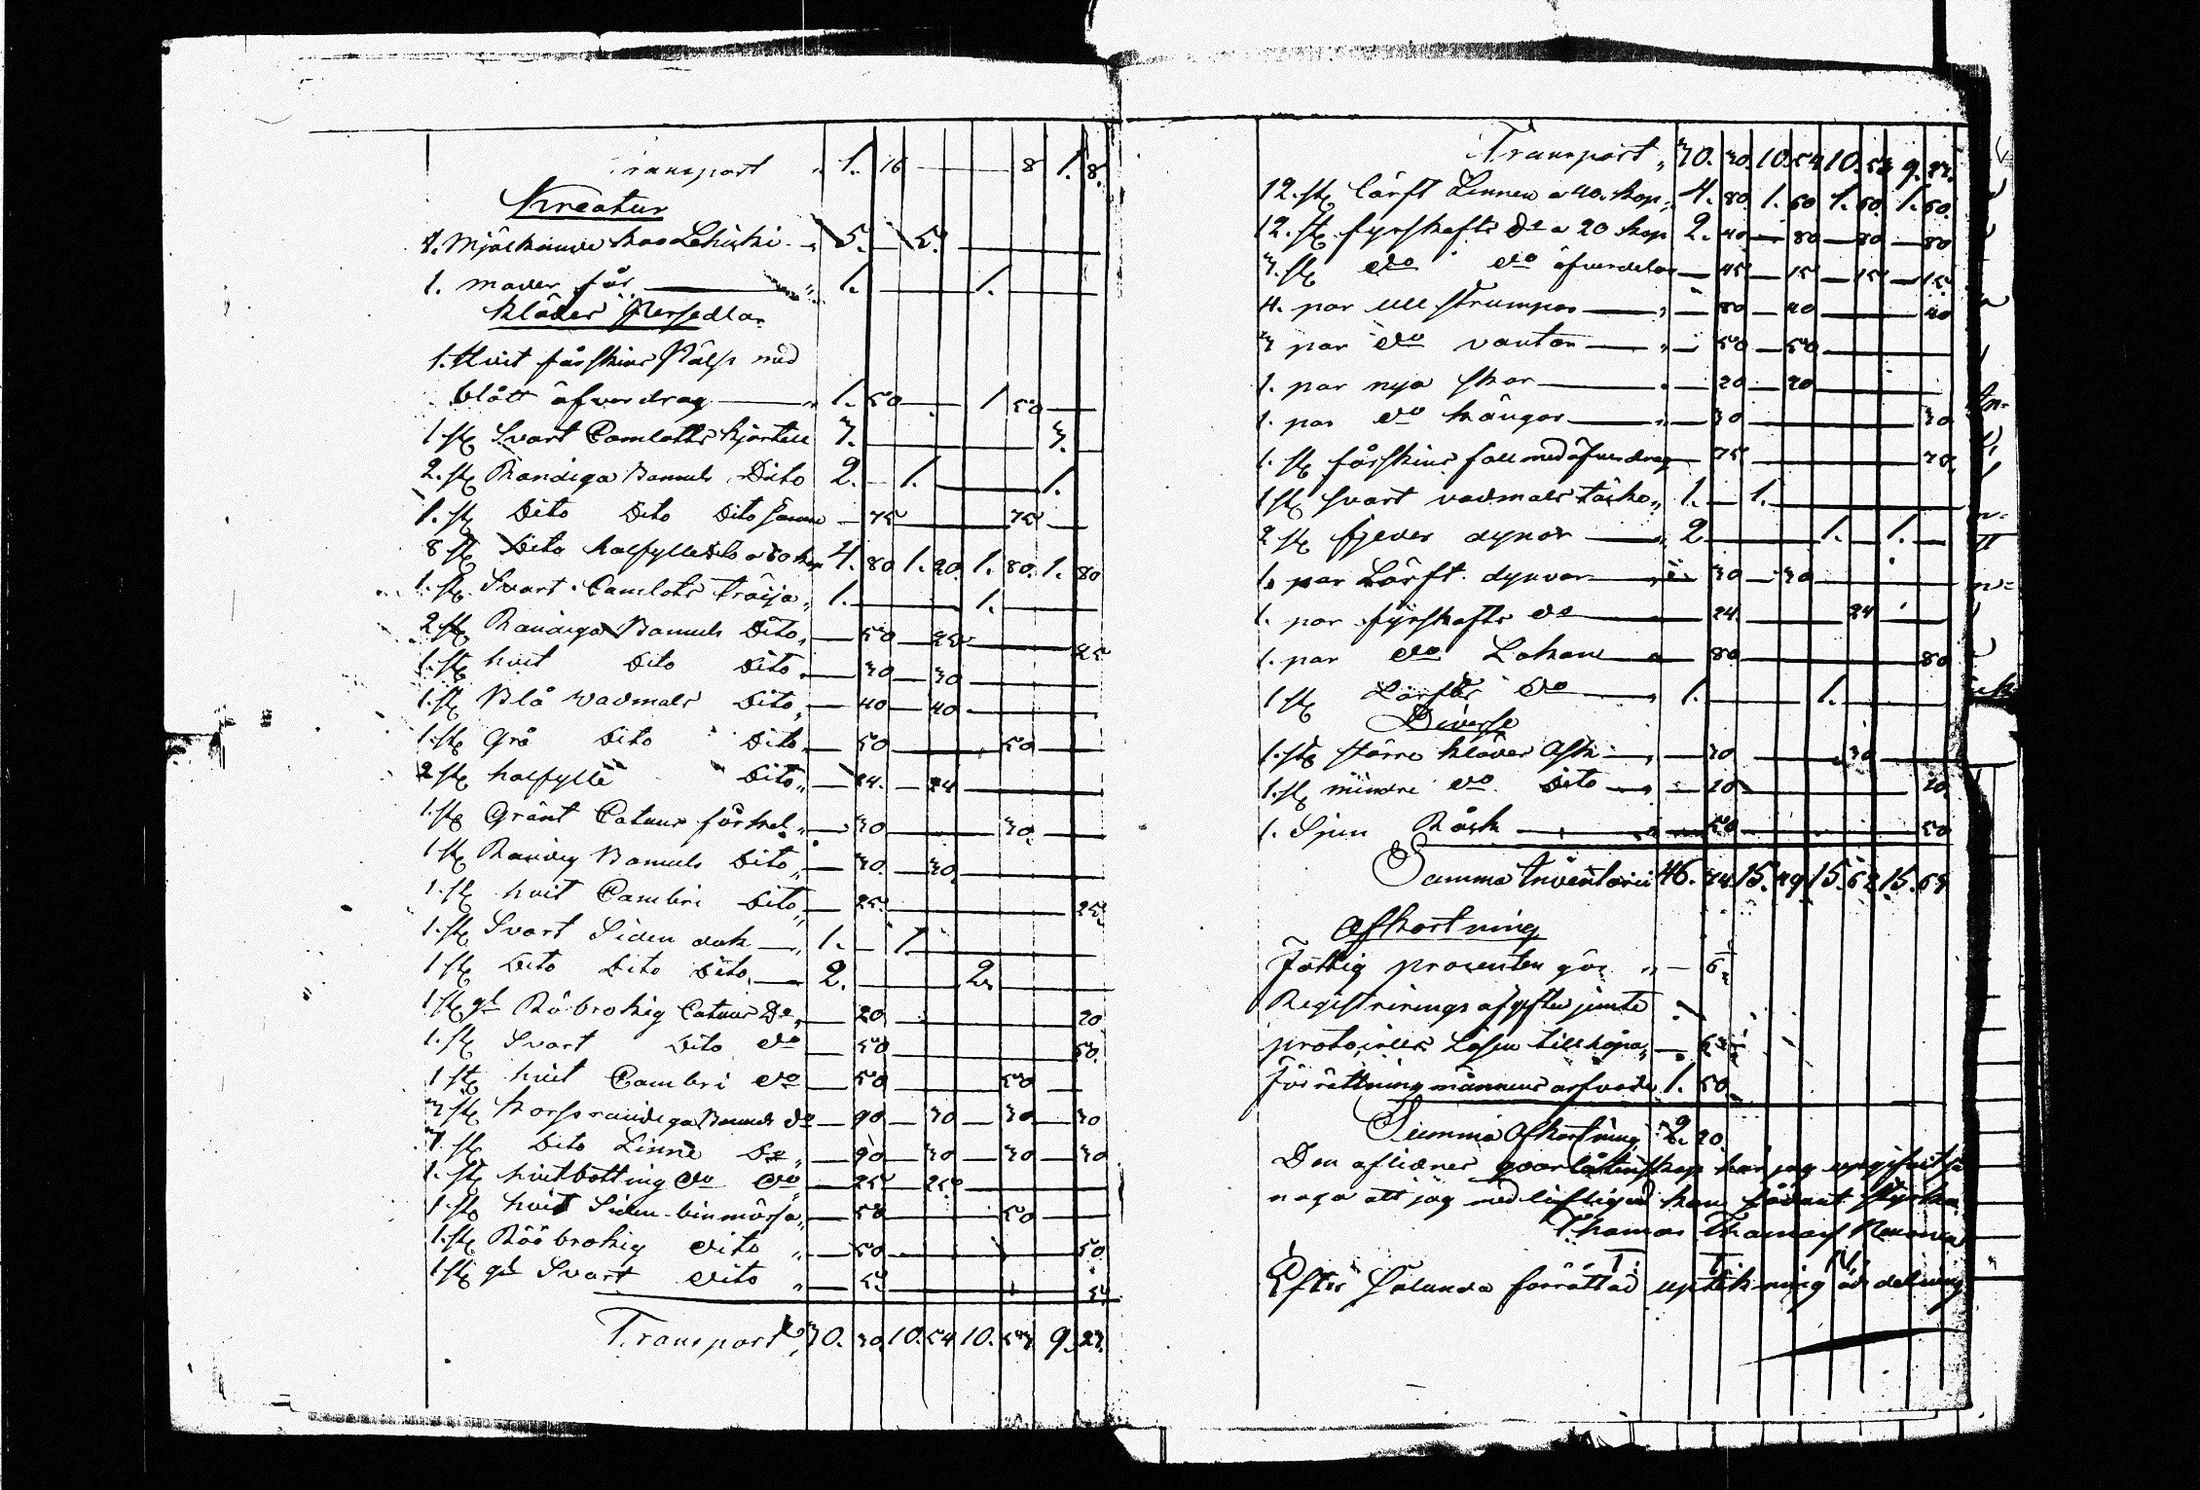 Transport " 1. 16 — — 8 1. 8.
Kreatur
1. Mjölkande koo Lehikki — " 5. — 5. —
1. moder får — " 1. — 1. —
Kläder Persedlar
1. Hvit fårskins Päls med
blått öfverdrag — " 1. 50 — 1 50 —
1. st Svart Camlotts kjortell 3. — 3.
2. st Randiga Bomuls Dito 2. — 1. — 1.
1. st Dito Dito Dito — 75 — 75 —
8 st Dito halfylle dito a 60 kop 4. 80 1. 20. 1. 80. 1. 80
1. st Svart Camlots tröija " 1. — 1. —
2 st Randiga Bomuls Dito " — 50 — 25 — 25
1. st hvit Dito Dito " — 30 — 30 —
1. st Blå wadmals Dito " — 40 — 40 —
1. st Grå Dito Dito — 50 — 50 —
2 st halfylle Dito " — 24. — 24 —
1. st Grönt Catuns förkel " — 30 — 30 —
1 st Randig Bomuls Dito " — 30. — 30. —
1. st hvit Cambri Dito " — 25 — 25
1. st Svart Siden duk — " 1. — 1. —
1 st Dito Dito Dito — 2. — 2. —
1 st gl Rö brokig Catuns Do " — 20 — 20
1. st Svart Dito do — 50 — 50.
1 st hvit Cambri do — 50 — 50 —
3 st Korsrandiga Bomuls do — 90 — 30 — 30 — 30
3. st Dito Linne Do " — 90 — 30 — 30 — 30
1. st hvitbotting do do — 25 — 25 —
1 st hvit Siden binmössa " — 50 — 50 —
1. st Röö brokig dito " — 50 — 50
1 st gl Svart dito " — 5 — 5
Transport 30. 30. 10. 54 10. 53 9. 23.
Transport " 30. 30. 10. 54 10. 53 9. 23.
12. st lärft Linnen a 40. kop " 4. 80. 1. 60 1. 60. 1. 60.
12. st fyrskafts Do a 20 kop 2. 40 — 80 — 80 — 80
3. st do do öfverdelar — 45 — 15 — 15 — 15
4. par ull strumpor — " — 80 — 40 — 40
3 par do vantar — " — 50 — 50 —
1. par nya skor — " — 20 — 20 —
1. par do kängor — " — 30 — 30
1. st fårskins fäll med öfverdrag — 75 — 75
1 st svart vadmals täcke " 1. — 1. —
2 st fjeder dynor — " 2 — 1. — 1. —
1. par Lärft dynvar — " — 30 — 30 —
1. par fyrskafts do — 24. — 24
1. par do Lakan — " — 80 — 80
1 st Lärfts do — " 1. — 1. —
Diverse
1. st större kläder Ask — " — 30 — 30 —
1. st mindre do Dito — " — 20 — 20
1. Spin Råck — " — 50 — 50
Summa Inventarii 46. 74. 15. 49 15. 62 15. 63
Afkortning
Fattig procenten gör " — 6
Registrerings afgiften jemte
protocolls Lösen tillhopa " —
Förrättning männens arfvode 1. 50.
Summa Afkortning 2. 20.
Den aflidnes qvarlåtenskap har jag uppgifvit så
noga att jag med liflig ed kan sådant styrka
Thomas Thomas
T. T. N.
Efter Sålunda förrättad upteckning och delning